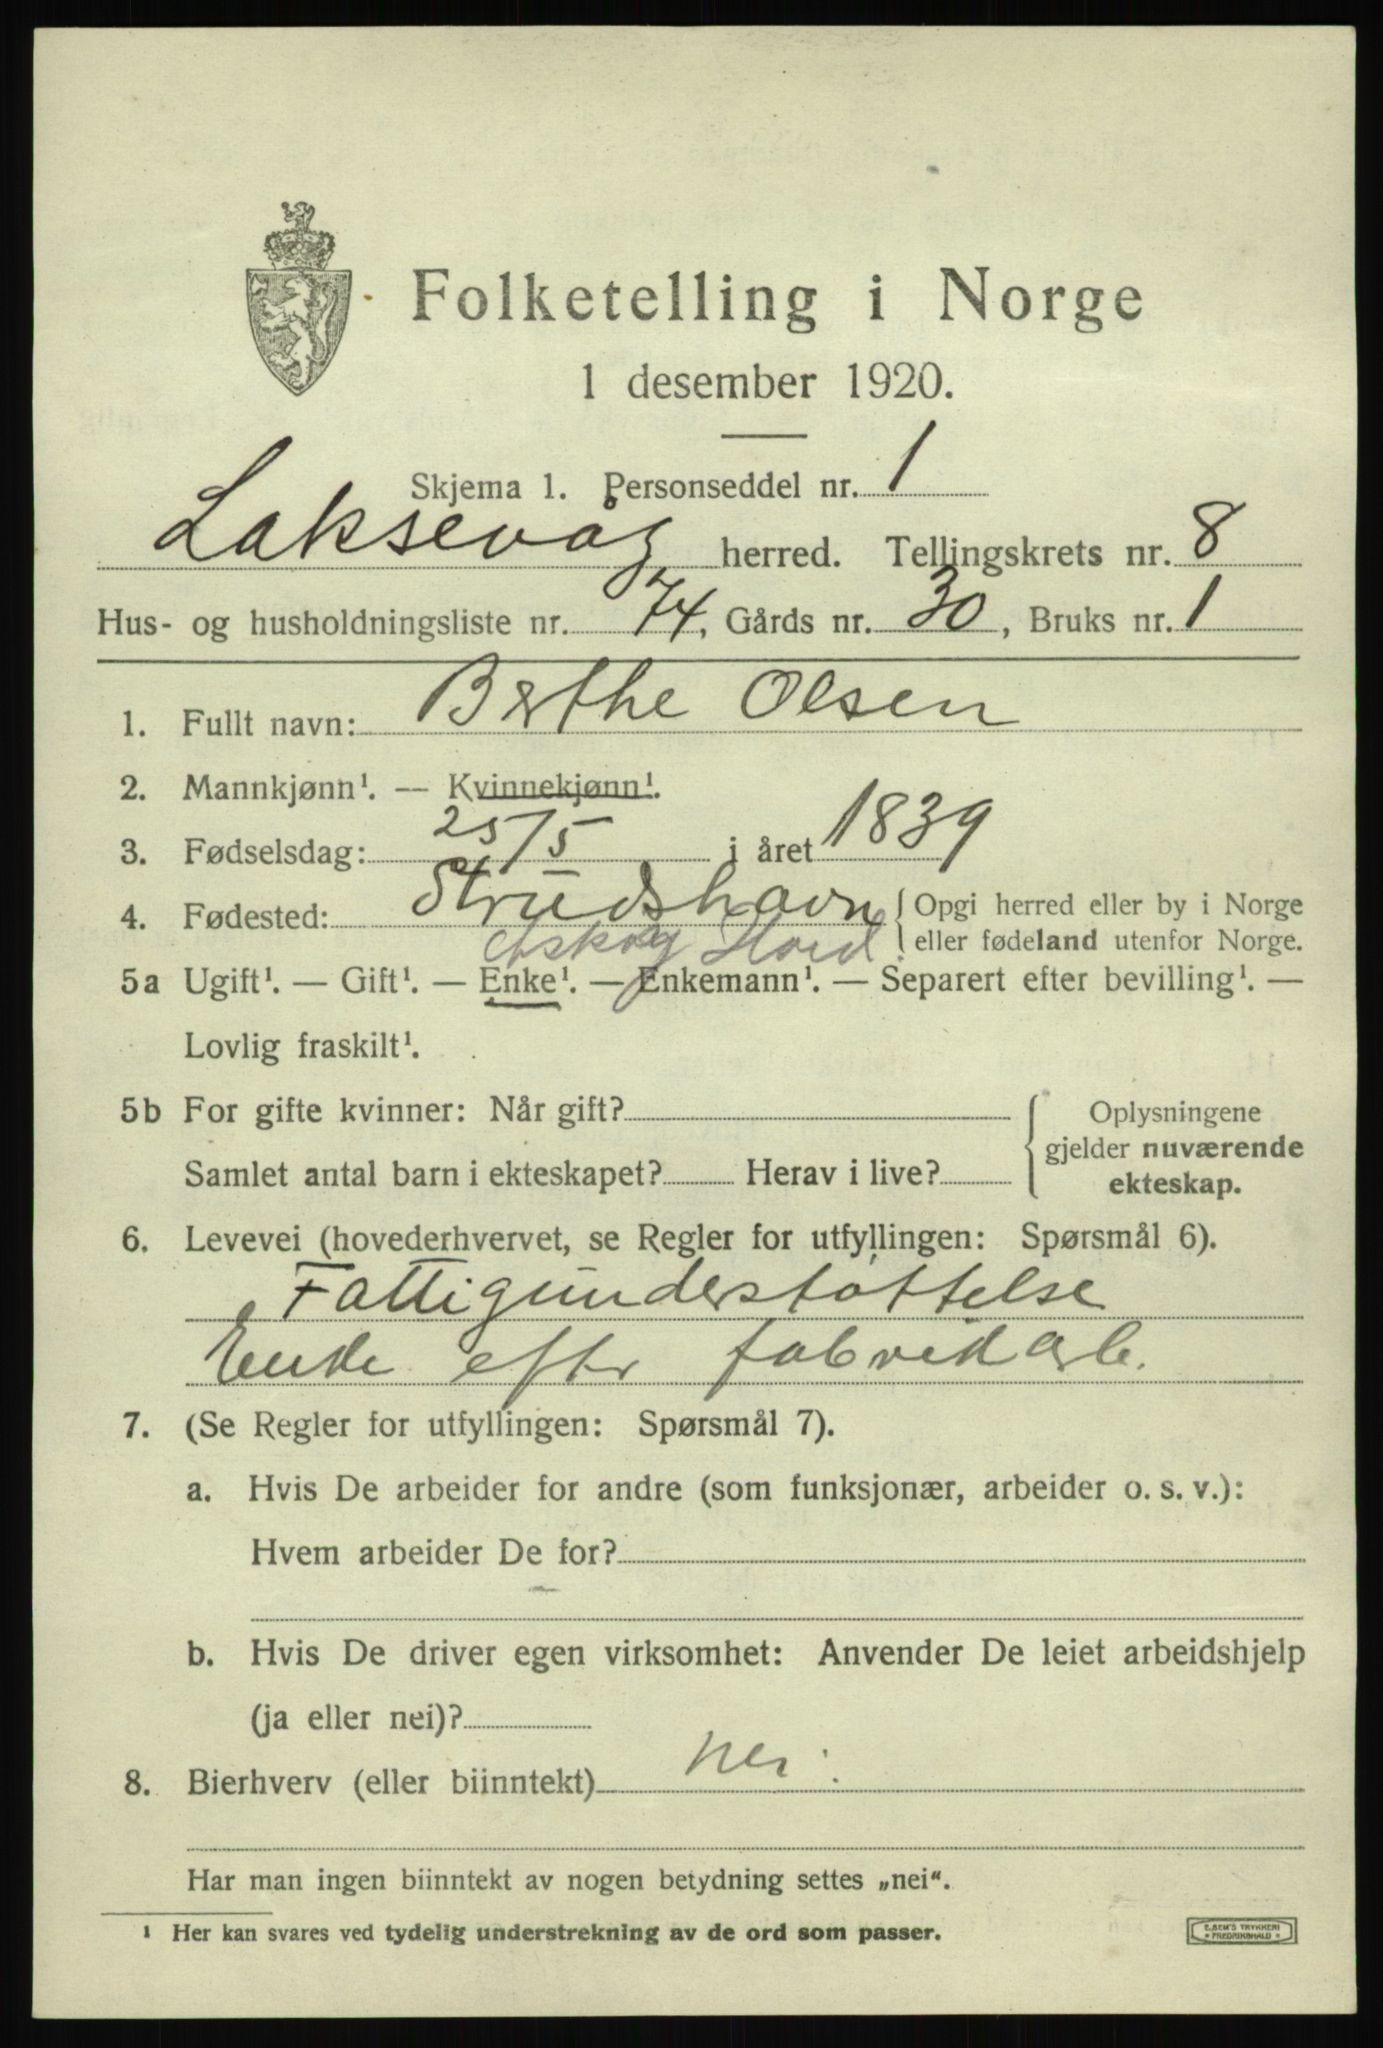 Folketelling i Norge
1 desember 1920.
Skjema 1. Personseddel nr. 1
Laksevåg herred. Tellingskrets nr. 8
Hus- og husholdningsliste nr. 74, Gårds nr. 30, Bruks nr. 1
1. Fullt navn: Berthe Olsen
2. Mannkjønn¹. — Kvinnekjønn¹.
3. Fødselsdag: 25/5 i året 1839
4. Fødested: Strudshavn { Opgi herred eller by i Norge
Askøy Hord. eller fødeland utenfor Norge.
5a Ugift¹. — Gift¹. — Enke¹. — Enkemann¹. — Separert efter bevilling¹. —
Lovlig fraskilt¹.
5b For gifte kvinner: Når gift?
Samlet antal barn i ekteskapet? Herav i live?
{ Oplysningene
gjelder nuværende
ekteskap.
6. Levevei (hovederhvervet, se Regler for utfyllingen: Spørsmål 6).
Fattigunderstøttelse
Enke efter fabrikkarb.
7. (Se Regler for utfyllingen: Spørsmål 7).
a. Hvis De arbeider for andre (som funksjonær, arbeider o. s. v.):
Hvem arbeider De for?
b. Hvis De driver egen virksomhet: Anvender De leiet arbeidshjelp
(ja eller nei)?
8. Bierhverv (eller biinntekt) nei.
Har man ingen biinntekt av nogen betydning settes „nei“.
¹ Her kan svares ved tydelig understrekning av de ord som passer.
E. SEM'S TRYKKERI
FREDRIKSHALD